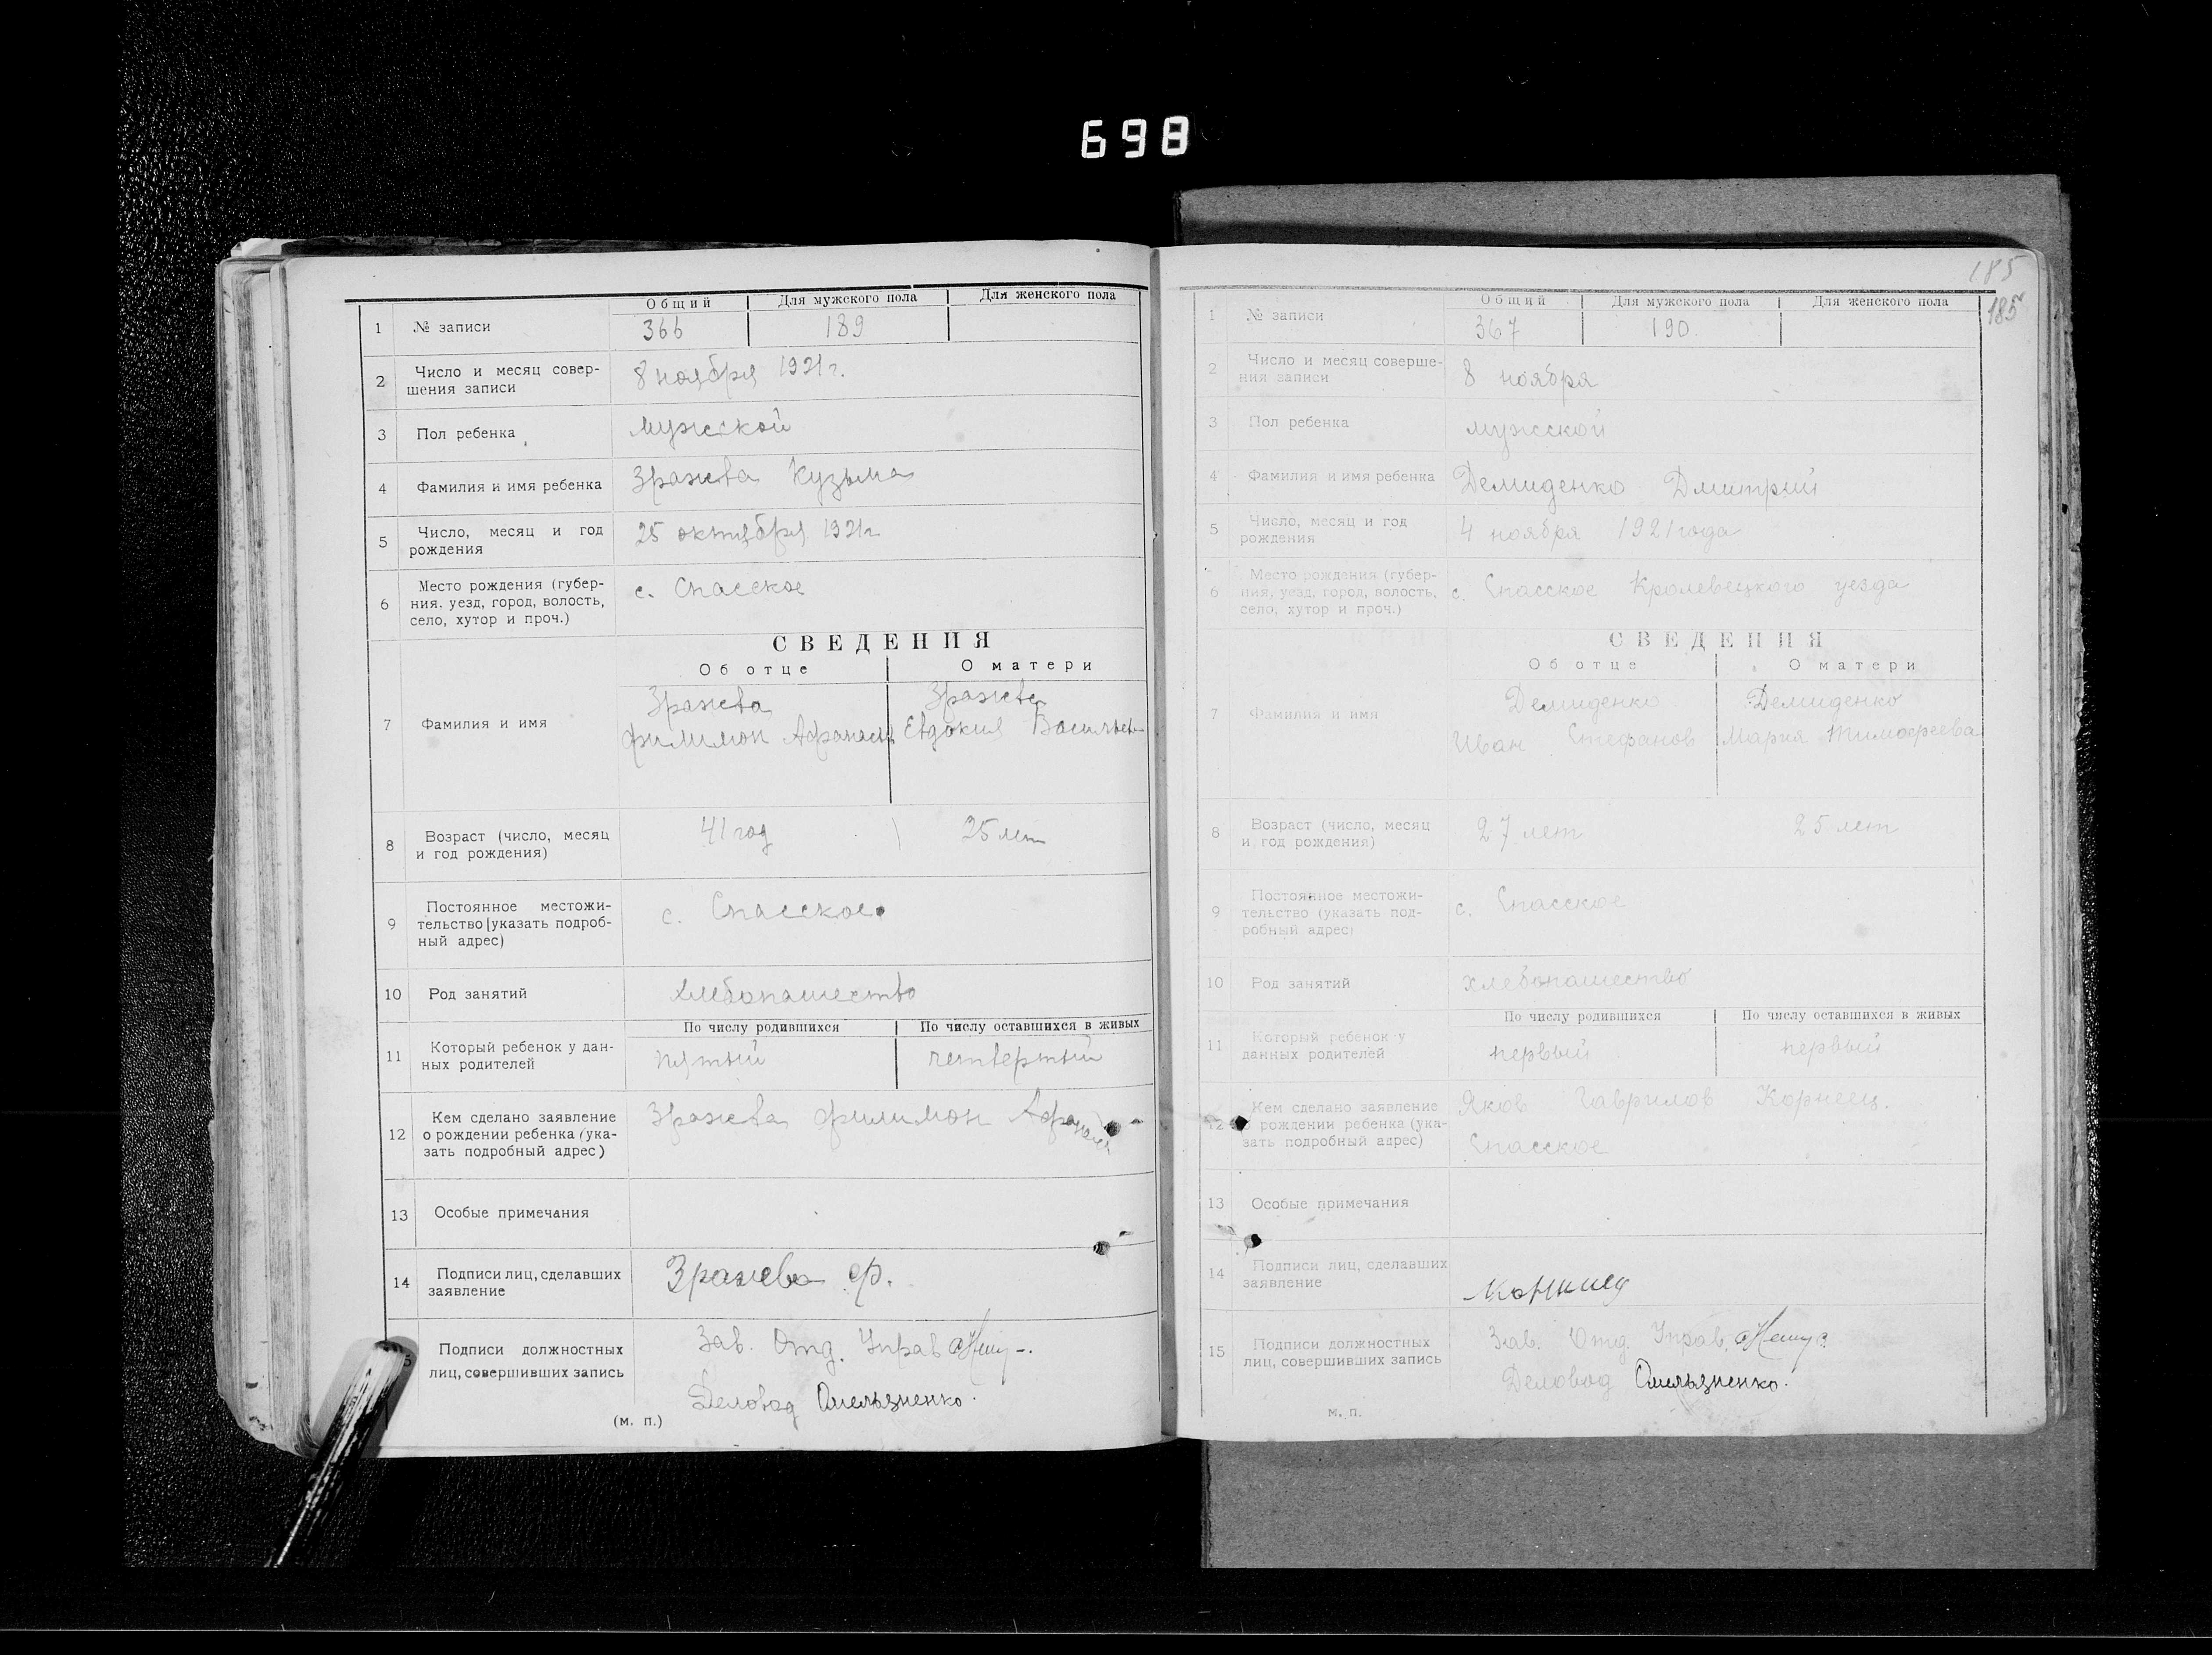 698
Общий Для мужского пола Для женского пола
1 № записи 366 189
2 Число и месяц совер-
шения записи 8 ноября 1921 г.
3 Пол ребенка мужской
4 Фамилия и имя ребенка Зражева Кузьма
5 Число, месяц и год
рождения 25 октября 1921 г
6 Место рождения (губер-
ния. уезд, город, волость,
село, хутор и проч.) с. Спасское
СВЕДЕНИЯ
Об отце О матери
7 Фамилия и имя
Зражева Зражева
Филимон Афанасьев Евдокия Васильев
8 Возраст (число, месяц
и год рождения) 41 год 25 лет
9 Постоянное местожи-
тельство (указать подроб-
ный адрес) с. Спасское
10 Род занятий хлебопашество
По числу родившихся По числу оставшихся в живых
11 Который ребенок у дан-
ных родителей пятый четвертый
12 Кем сделано заявление
о рождении ребенка (ука-
зать подробный адрес) Зражева Филимон
13 Особые примечания
14 Подписи лиц, сделавших
заявление Зражева Ф.
15 Подписи должностных
лиц, совершивших запись
Зав. Отд. Управ
Деловод Омельяненко.
(м. п.)
185
185
Общий Для мужского пола Для женского пола
1 № записи 367 190.
2 Число и месяц соверше-
ния записи 8 ноября
3 Пол ребенка мужской
4 Фамилия и имя ребенка Демиденко Дмитрий
5 Число, месяц и год
рождения 4 ноября 1921 года
6 Место рождения (губер-
ния, уезд, город, волость,
село, хутор и проч.) с. Спасское Кролевецкого уезда
СВЕДЕНИЯ
Об отце О матери
7 Фамилия и имя
Демиденко Демиденко
Иван Стефанов Мария Тимофеева
8 Возраст (число, месяц
и год рождения) 27 лет 25 лет
9 Постоянное местожи-
тельство (указать под-
робный адрес) с. Спасское
10 Род занятий хлебопашество
По числу родившихся По числу оставшихся в живых
11 Который ребенок у
данных родителей первый первый
12 Кем сделано заявление
о рождении ребенка (ука-
зать подробный адрес) Яков Гаврилов Корнеец.
Спасское
13 Особые примечания
14 Подписи лиц, сделавших
заявление
15 Подписи должностных
лиц, совершивших запись
Зав. Отд. Управ.
Деловод Омельяненко.
м. п.